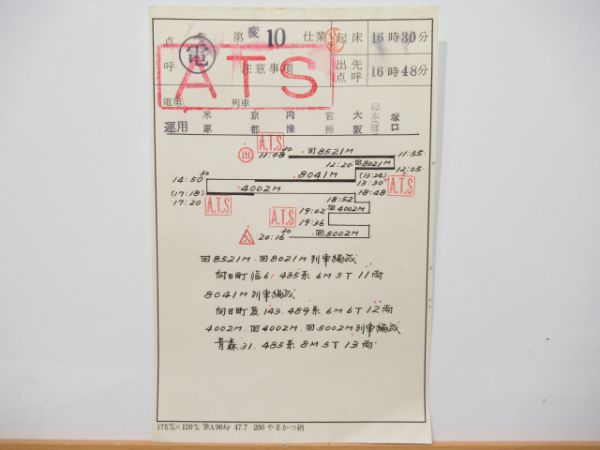 点 電 第 変 10 仕業 起床 16時30分
呼 注意事項 出先点呼 16時48分
ATS
電第 列車
運用 米原 京都 向操 宮操 大阪 塚口
出 11:08 30 回8521M 11:55
A.T.S
12:20 回8021M 12:05
30 8041M (13:24)
14:50 13:30 A.T.S
(17:18) 4002M 18:48
17:20 A.T.S 18:52
19:02 回4002M
A.T.S
19:36
入 20:16 30 回5002M
回8521M.回8021M列車編成
向日町臨6. 485系 6M5T 11両
8041M列車編成
向日町 143. 489系 6M6T 12両
4002M.回4002M.回5002M列車編成
青森31. 485系 8M5T 13両
47.7 200 やまかつ納